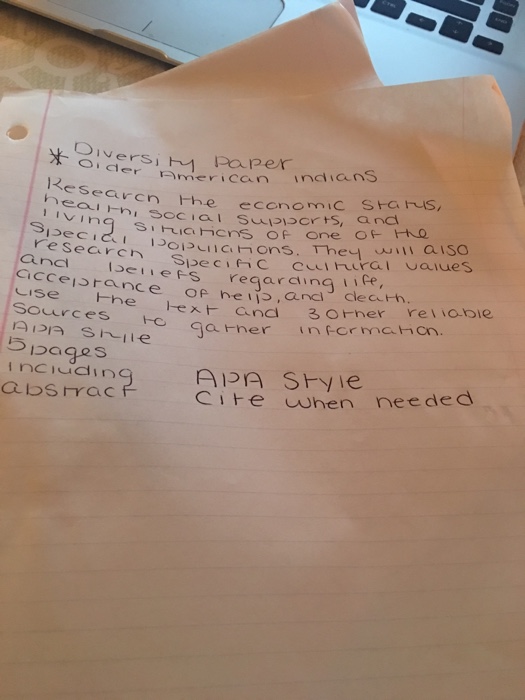 Diversity paper
* Older American indians
Research the economic status,
health, social supports, and
living situations of one of the
special populations. They will also
research specific cultural values
and beliefs regarding life,
acceptance of help, and death.
use the text and 3 other reliable
sources to gather information.
APA Style
5 pages
including APA Style
abstract Cite when needed